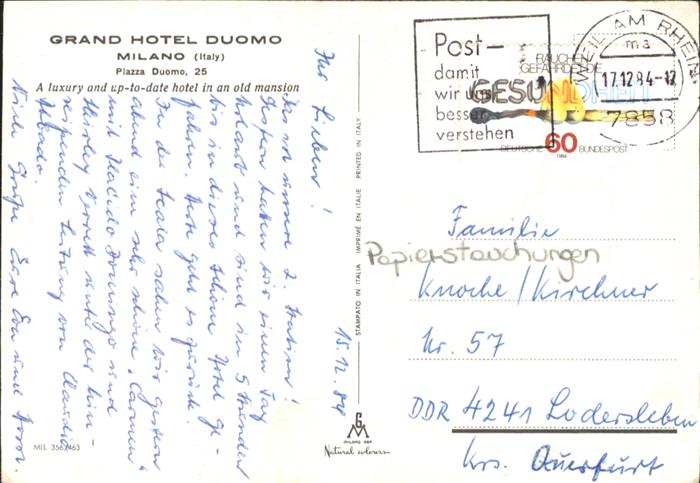 GRAND HOTEL DUOMO
MILANO (Italy)
Piazza Duomo, 25
A luxury and up-to-date hotel in an old mansion
Ihr Lieben!
Das ist unsere 2. Station!
Gestern hatten wir einen Tag
Urlaub und sind in 5 Stunden
bis in dieses schöne Hotel ge-
fahren. Heute geht es zurück.
In der Scala sahen wir gestern
abend eine sehr schöne "Carmen"
mit Placido Domingo und
Shirley Verrett unter der hin-
reißenden Leitung von Claudio
Abbado.
Viele Grüße Eure Eva und
15.12.84
MIL 356/463
STAMPATO IN ITALIA IMPRIMÉ EN ITALIE PRINTED IN ITALY
GM
MILANO
Natural colours
Post-
damit
wir uns
besser
verstehen
WEIL AM RHEIN
ma
17.12.84-12
7858
RAUCHEN
GEFÄHRDET DIE
GESUNDHEIT
DEUTSCHE 60 BUNDESPOST
1984
Familie
Papierstauchungen
Knoche/Kirchner
Nr. 57
DDR 4241 Lodersleben
Krs. Querfurt